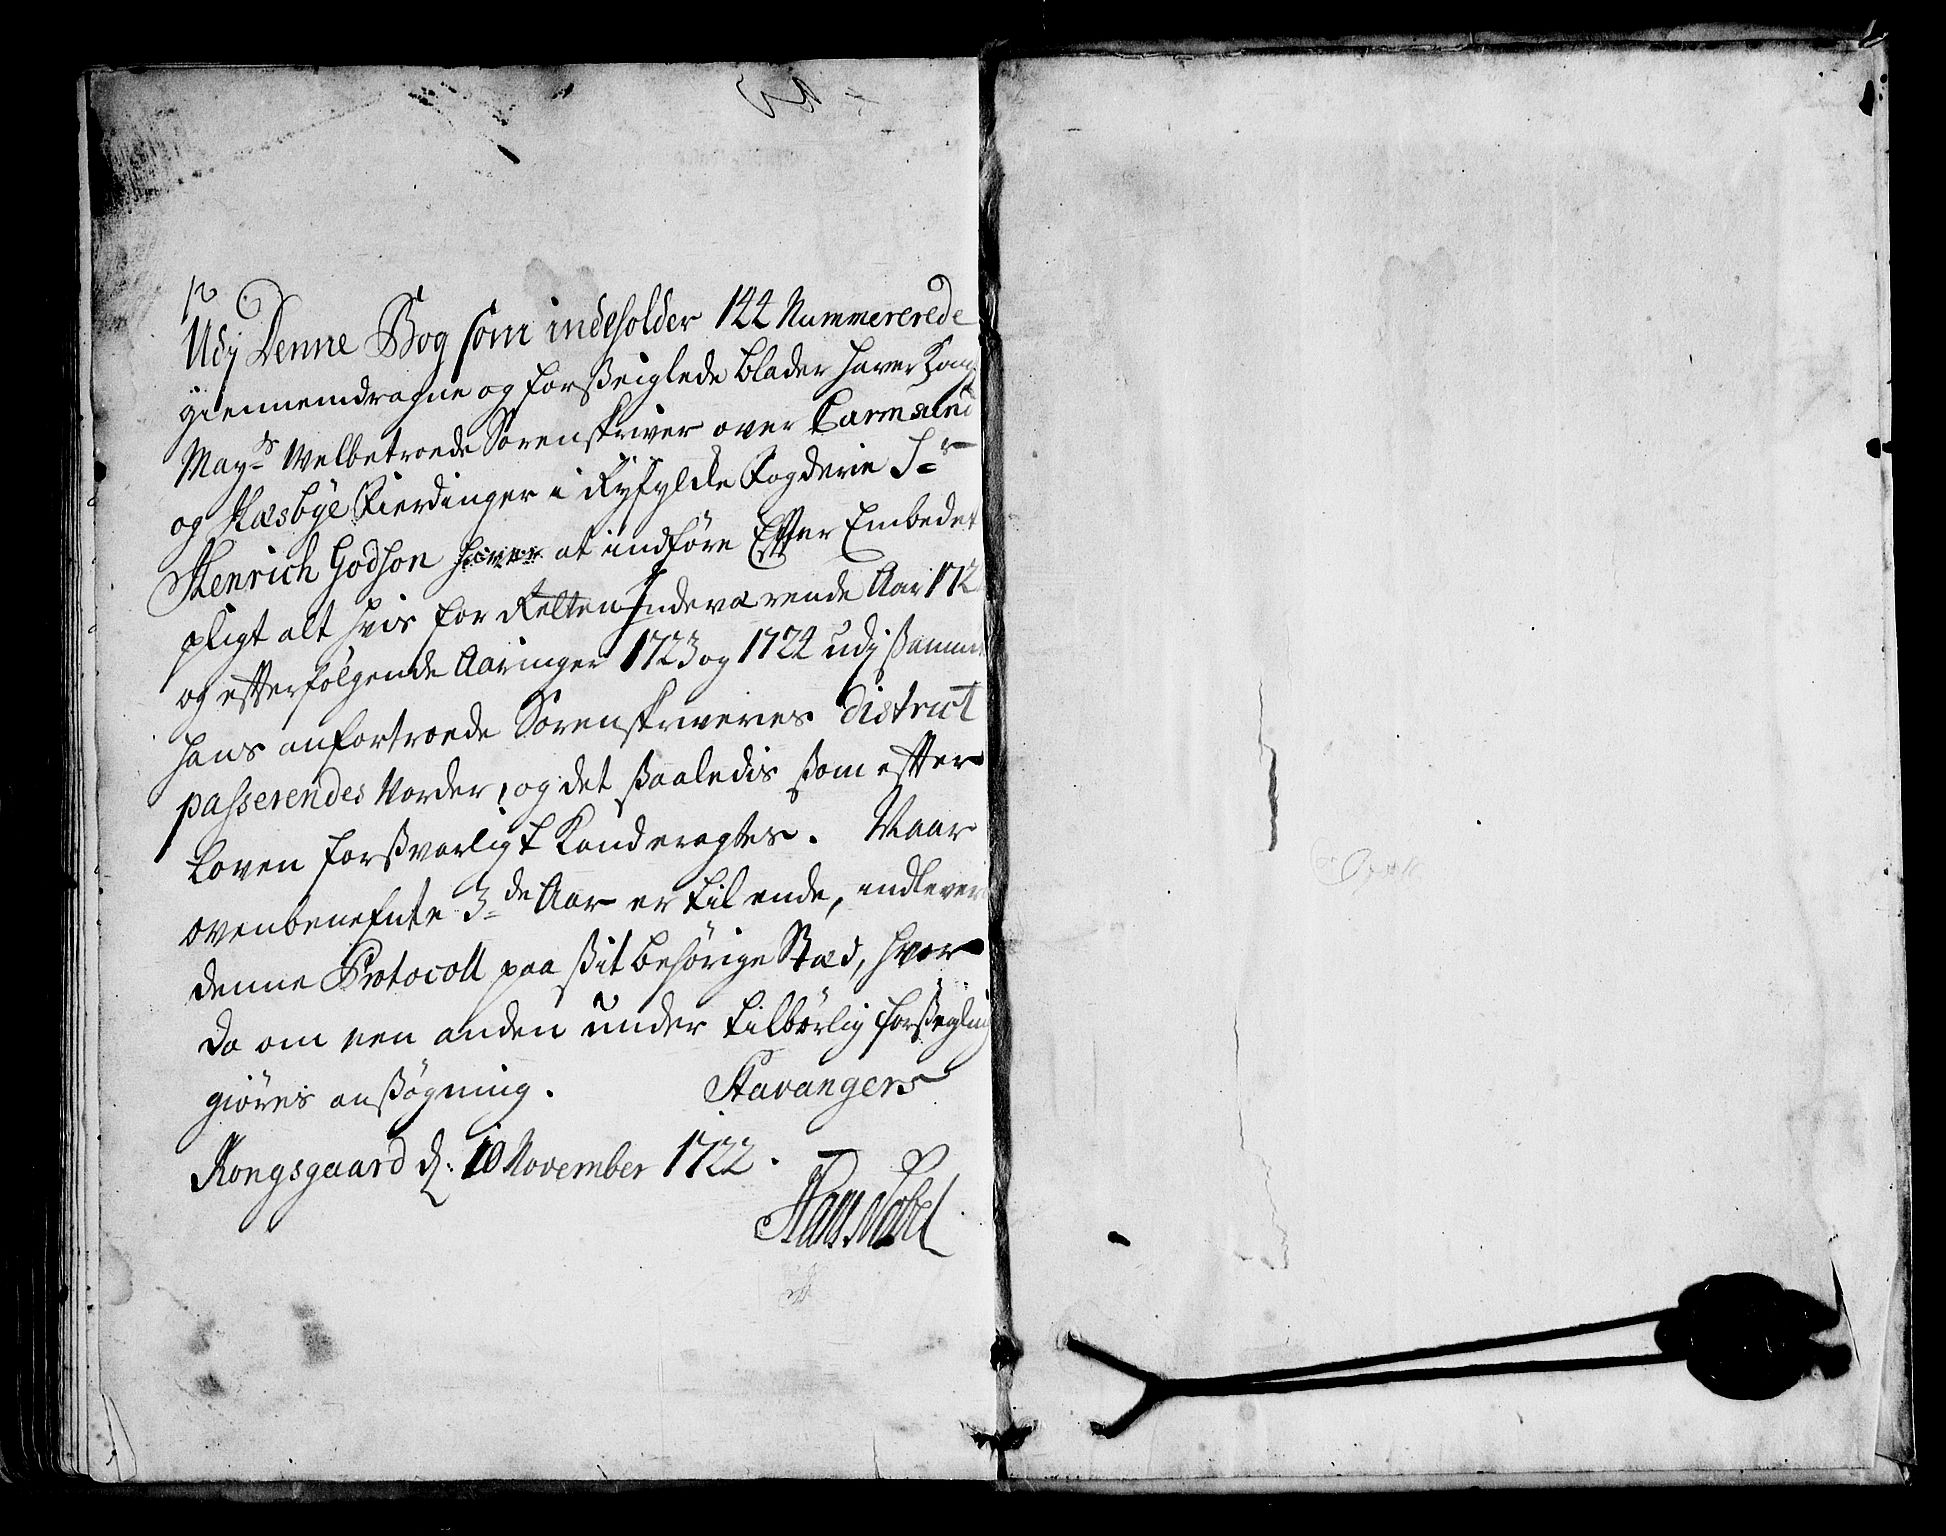 Udj Denne Bog som indeholder 144 Nummererede
giennemdragne og forsseiglede blader haver Kong
May.ts Welbetroede Sorenskriver over Carmsund
og Hæsbye Fierdinger i Ryfylcke Fogderie Sr
Henrich Godson haver at indføre Effter Embedet
pligt alt hvis for Retten Indeværende Aar 172
og effterfølgende Aaringer 1723 og 1724 udj samme
hans anfortroede Sorenskriveries District
passerendes vorder, og det saaledis som effter
Loven forsvarligt kand eragtes. Naar
ovenbenefnte 3de Aar er til ende, indlevere
denne Protocoll paa sit behörige Stæd, hvor
da om een anden under tilbørlig forseglin
giøres ansøgning. Stavangers
Kongsgaard d: 10 November 1722.
Hans Nobel